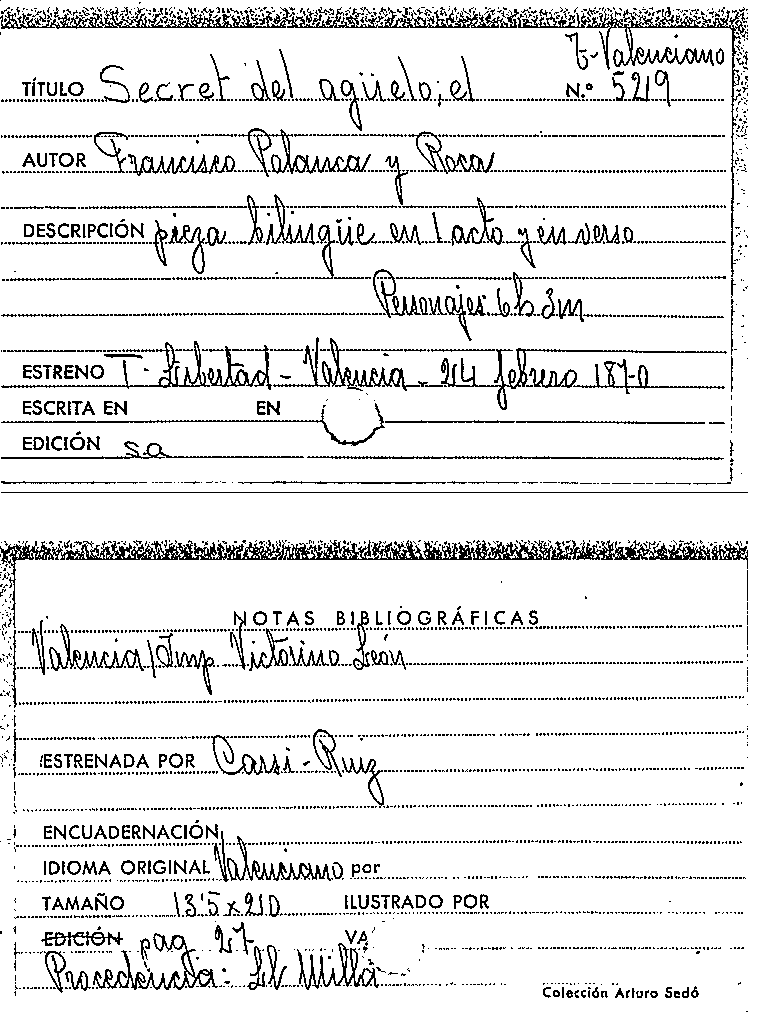 T-Valenciano
TÍTULO Secret del agüelo; el N.º 5219
AUTOR Francisco Palanca y Roca
DESCRIPCIÓN pieza bilingüe en 1 acto y en verso
Personajes 6h 3m
ESTRENO T. Libertad - Valencia - 24 febrero 1870
ESCRITA EN EN
EDICIÓN s.a
NOTAS BIBLIOGRÁFICAS
Valencia/Imp Victorino León
ESTRENADA POR Carsi-Ruiz
ENCUADERNACIÓN
IDIOMA ORIGINAL Valenciano por
TAMAÑO 13'5x21'0 ILUSTRADO POR
EDICIÓN pag 27 VA
Procedencia: Lb Millá
Colección Arturo Sedó